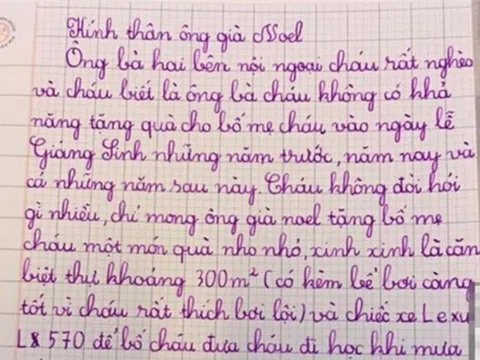 Kính thân ông già Noel
Ông bà hai bên nội ngoại cháu rất nghèo
và cháu biết là ông bà cháu không có khả
năng tặng quà cho bố mẹ cháu vào ngày lễ
Giáng Sinh những năm trước, năm nay và
cả những năm sau này. Cháu không đòi hỏi
gì nhiều, chỉ mong ông già noel tặng bố mẹ
cháu một món quà nho nhỏ, xinh xinh là căn
biệt thự khoảng 300m² (có kèm bể bơi càng
tốt vì cháu rất thích bơi lội) và chiếc xe Lexu
LX 570 để bố cháu đưa cháu đi học khi mưa